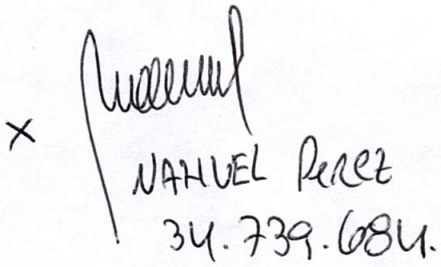 x
NAHUEL PEREZ
34.739.684.